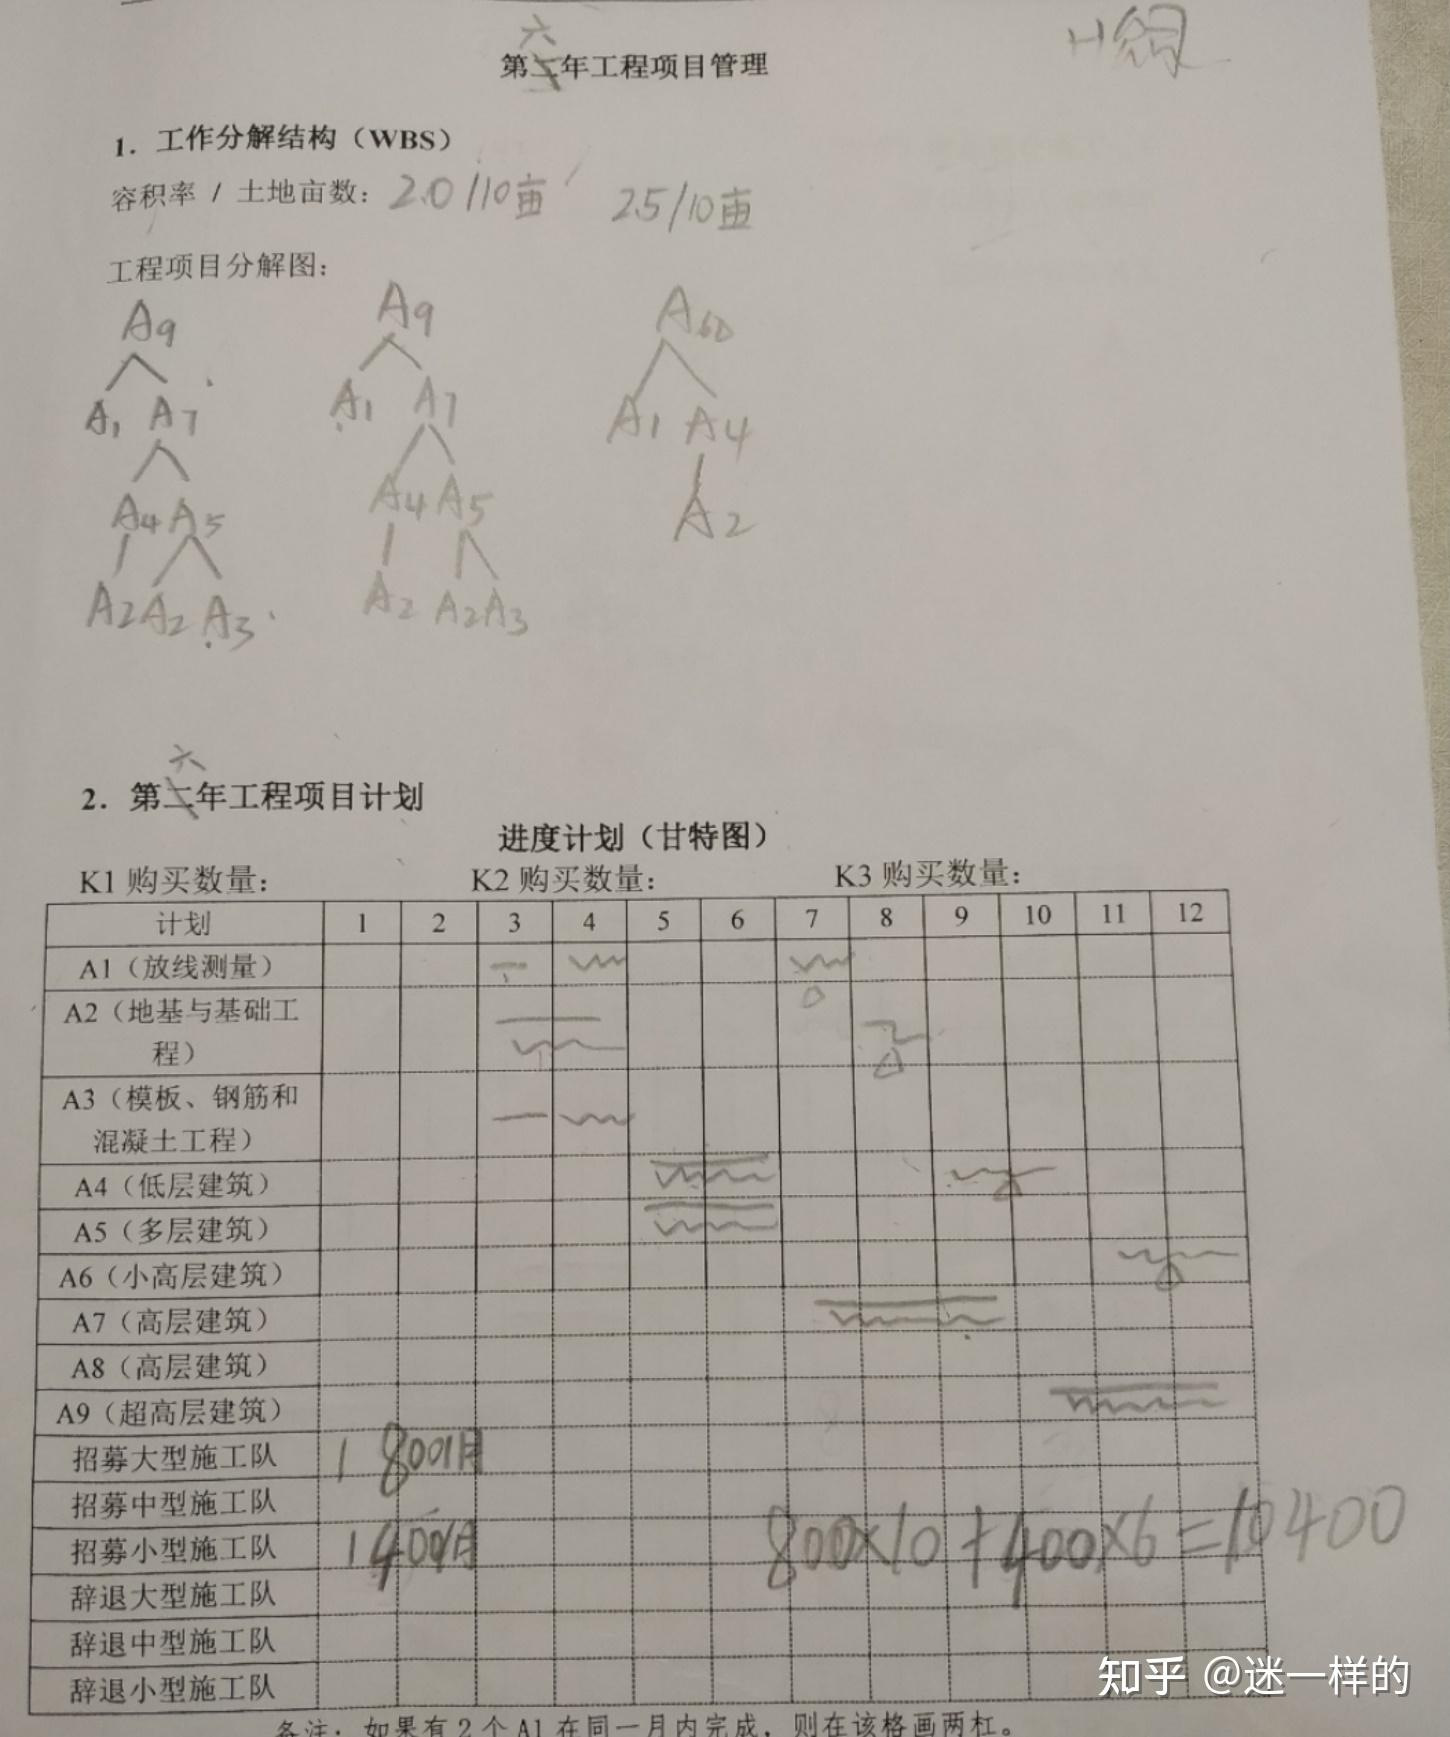 六
第二年工程项目管理
1. 工作分解结构（WBS）
容积率 / 土地亩数：2.0/10亩 2.5/10亩
工程项目分解图：
A9 A9 A6
A1 A7 A1 A7 A1 A4
A4 A5 A4 A5 A2
A2 A2 A3 A2 A2 A3
六
2. 第二年工程项目计划
进度计划（甘特图）
K1 购买数量： K2 购买数量： K3 购买数量：
计划 1 2 3 4 5 6 7 8 9 10 11 12
A1（放线测量）
A2（地基与基础工
程）
A3（模板、钢筋和
混凝土工程）
A4（低层建筑）
A5（多层建筑）
A6（小高层建筑）
A7（高层建筑）
A8（高层建筑）
A9（超高层建筑）
招募大型施工队 1 800/月
招募中型施工队
招募小型施工队 1 400/月 800×10+400×6=10400
辞退大型施工队
辞退中型施工队
辞退小型施工队
备注：如果有 2 个 A1 在同一月内完成，则在该格画两杠。
知乎 @迷一样的